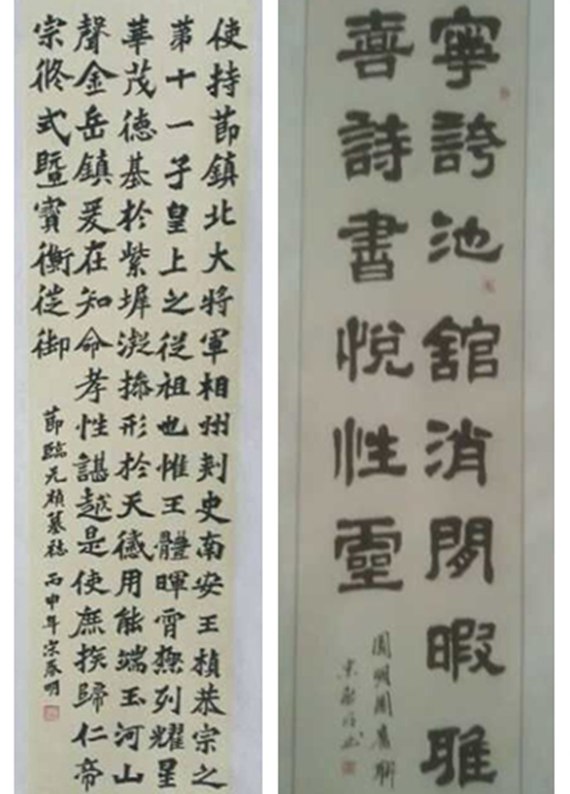 使持節鎮北大將軍相州刾史南安王楨恭宗之
第十一子皇上之從祖也惟王體暉霄極列耀星
華茂德基於紫墀凝操形於天感用能端玉河山
聲金岳鎮爰在知命孝性諶越是使庶族歸仁帝
宗攸式暨寶衡徙御
節臨元楨墓誌 丙申年宋啓明
寧誇池館消閒暇雅
喜詩書悅性靈
圓明園舊聯
宋啓明書